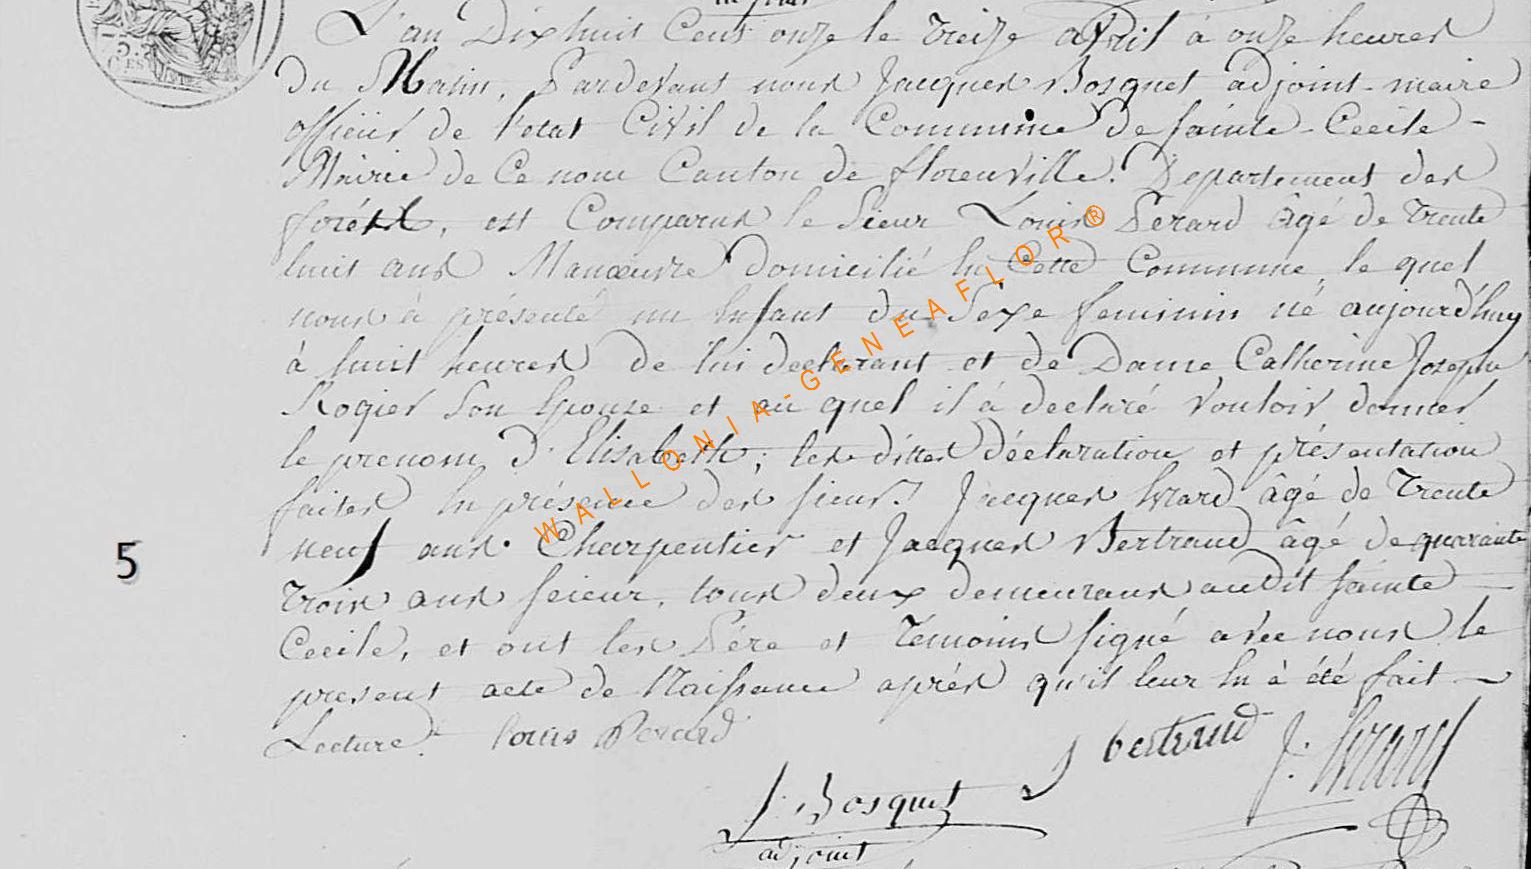 L'an Dix huit Cent onze le treize avril à onze heures
Du Matin, Pardevant nous Jacques Bosquet adjoint-maire
officier de l'etat Civil de la Commune de sainte-Cecile-
Mairie de Ce nom Canton de florenville. Departement des
foréts, est Comparus le sieur Louis Perard âgé de trente
huit ans Manœuvre domicilié En Cette Commune, le quel
nous à présenté un Enfant du Sexe feminin né aujourd'huy
à huit heures de lui declarant et de Dame Catherine Josephe
Rogier Son Epouse et au quel il à declaré Vouloir donner
le prenom d'Elisabeth; les dittes Déclaration et présentation
faites En présence des sieurs Jacques Evrard âgé de trente
neuf ans. Charpentier et Jacques Bertrand âgé de quarante
trois ans scieur, tous deux demeurans audit sainte
Cecile, et ont les Pére et témoins signé avec nous le
present acte de Naissance aprés qu'il leur En à été fait
Lecture. louis Perard
J bertrand J. Evrard
J. Bosquet
adjoint
5
75.
CES
WALLONIA-GENEAFLOR®